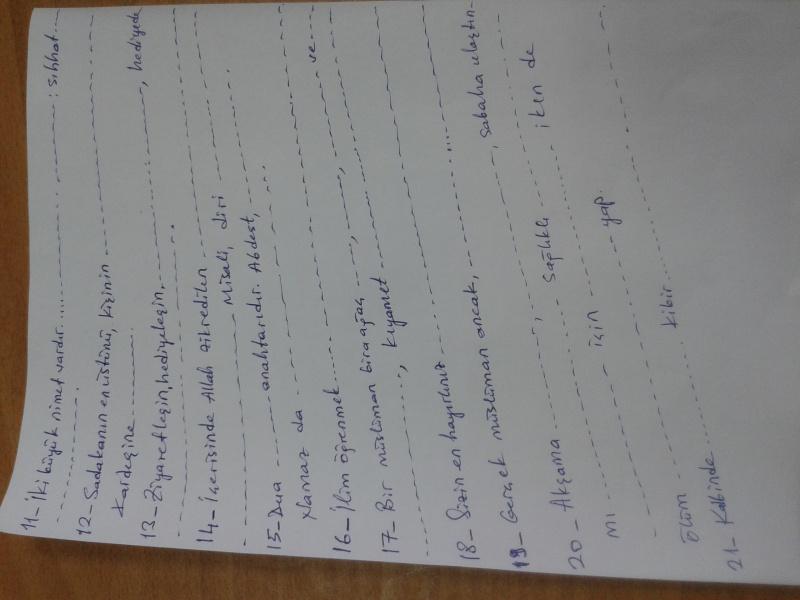 11- İki büyük nimet vardır. ............ : sıhhat
............
12- Sadakanın en üstünü, kişinin ............
kardeşine ............
13- Ziyaretleşin, hediyeleşin, ............, hediyede
............
14- İçerisinde Allah zikredilen ............
............ Misali, diri ............
15- Dua ............ anahtarıdır. Abdest, ............
Namaz da ............
16- İlim öğrenmek ............ ve
17- Bir müslüman bir ağaç ............, ............, ............
............, kıyamet ............
18- Sizin en hayırlınız ............
19- Gerçek müslüman ancak, ............
20- Akşama ............, ............, sabaha ulaştın-
mı ............ sağlıklı ............ iken de
............ için ............ yap.
ölüm ............
21- Kalbinde ............ kibir ............